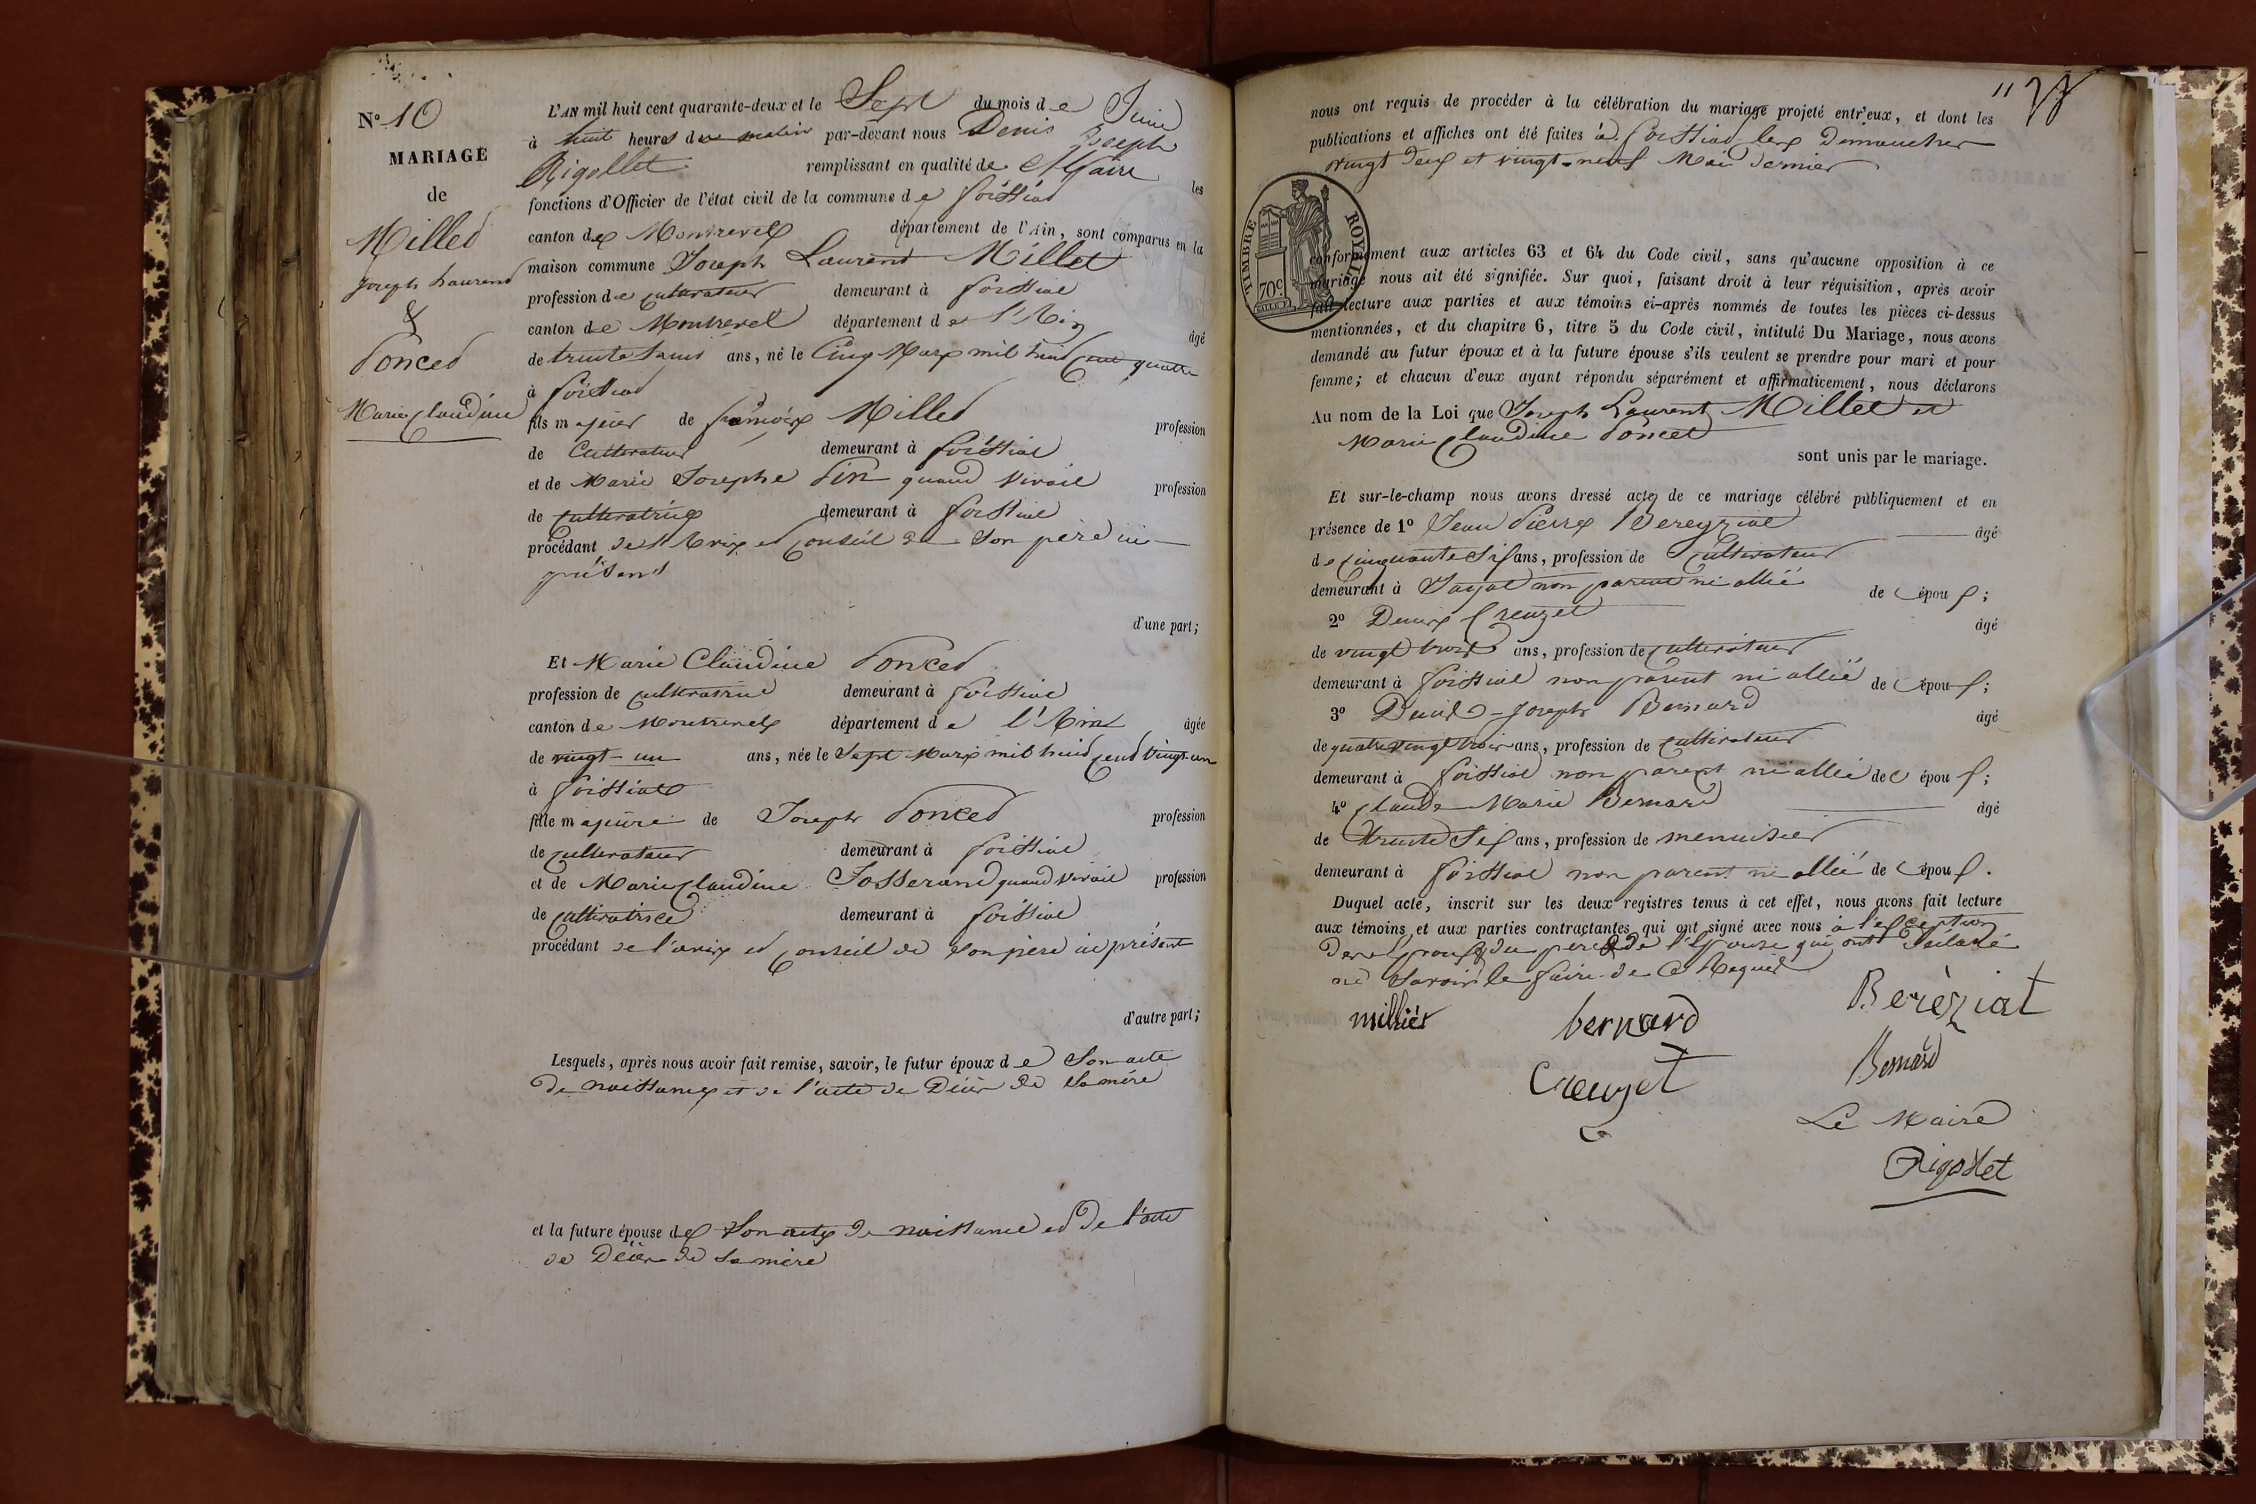 N° 10
MARIAGE
de
Millet
Joseph Laurent
&
Poncet
Marie Claudine
L'AN mil huit cent quarante-deux et le Sept du mois de Juin
à huit heures du matin par-devant nous Denis Joseph
Rigollet remplissant en qualité de Maire les
fonctions d'Officier de l'état civil de la commune de foissiat
canton de Montrevel département de l'Ain, sont comparus en la
maison commune Joseph Laurent Millet
profession de cultivateur demeurant à foissiat
canton de Montrevel département de l'Ain âgé
de trente ans, né le Cinq Mars mil huit Cent quatre
à foissiat
fils majeur de françois Millet profession
de Cultivateur demeurant à foissiat
et de Marie Josephe Pin quand vivait profession
de cultivatrice demeurant à foissiat
procédant de l'Avis et conseil de Son père ici
présent
d'une part;
Et Marie Claudine Poncet
profession de cultivatrice demeurant à foissiat
canton de Montrevel département de l'Ain âgée
de vingt-un ans, née le Sept Mars mil huit cent vingt-un
à foissiat
fille majeure de Joseph Poncet profession
de cultivateur demeurant à foissiat
et de Marie Claudine Josserand quand vivait profession
de cultivatrice demeurant à foissiat
procédant de l'avis et conseil de son père ici présent
d'autre part;
Lesquels, après nous avoir fait remise, savoir, le futur époux de Son acte
de naissance et de l'acte de Décès de Sa mère
et la future épouse de Son acte de naissance et de l'acte
de Décès de Sa mère
11
nous ont requis de procéder à la célébration du mariage projeté entr'eux, et dont les
publications et affiches ont été faites à foissiat les Dimanches
vingt Deux et vingt-neuf Mai dernier
TIMBRE ROYAL
70 c
conformément aux articles 63 et 64 du Code civil, sans qu'aucune opposition à ce
mariage nous ait été signifiée. Sur quoi, faisant droit à leur réquisition, après avoir
fait lecture aux parties et aux témoins ci-après nommés de toutes les pièces ci-dessus
mentionnées, et du chapitre 6, titre 5 du Code civil, intitulé Du Mariage, nous avons
demandé au futur époux et à la future épouse s'ils veulent se prendre pour mari et pour
femme; et chacun d'eux ayant répondu séparément et affirmativement, nous déclarons
Au nom de la Loi que Joseph Laurent Millet et
Marie Claudine Poncet
sont unis par le mariage.
Et sur-le-champ nous avons dressé acte de ce mariage célébré publiquement et en
présence de 1° Jean Pierre Bereyziat âgé
de cinquante Six ans, profession de Cultivateur
demeurant à Jayat non parent ni allié de époux;
2° Denis Creuzet âgé
de vingt trois ans, profession de cultivateur
demeurant à foissiat non parent ni allié de époux;
3° Denis-Joseph Bernard âgé
de quatre vingt trois ans, profession de cultivateur
demeurant à foissiat non parent ni allié de époux;
4° Claude Marie Bernard âgé
de trente Six ans, profession de menuisier
demeurant à foissiat non parent ni allié de époux.
Duquel acte, inscrit sur les deux registres tenus à cet effet, nous avons fait lecture
aux témoins et aux parties contractantes qui ont signé avec nous à l'exception
des époux & du père de l'Epouse qui ont déclaré
ne Savoir le faire de Ce Requis
bernard
Berèziat
Creuzet
Bernard
Le Maire
Rigollet